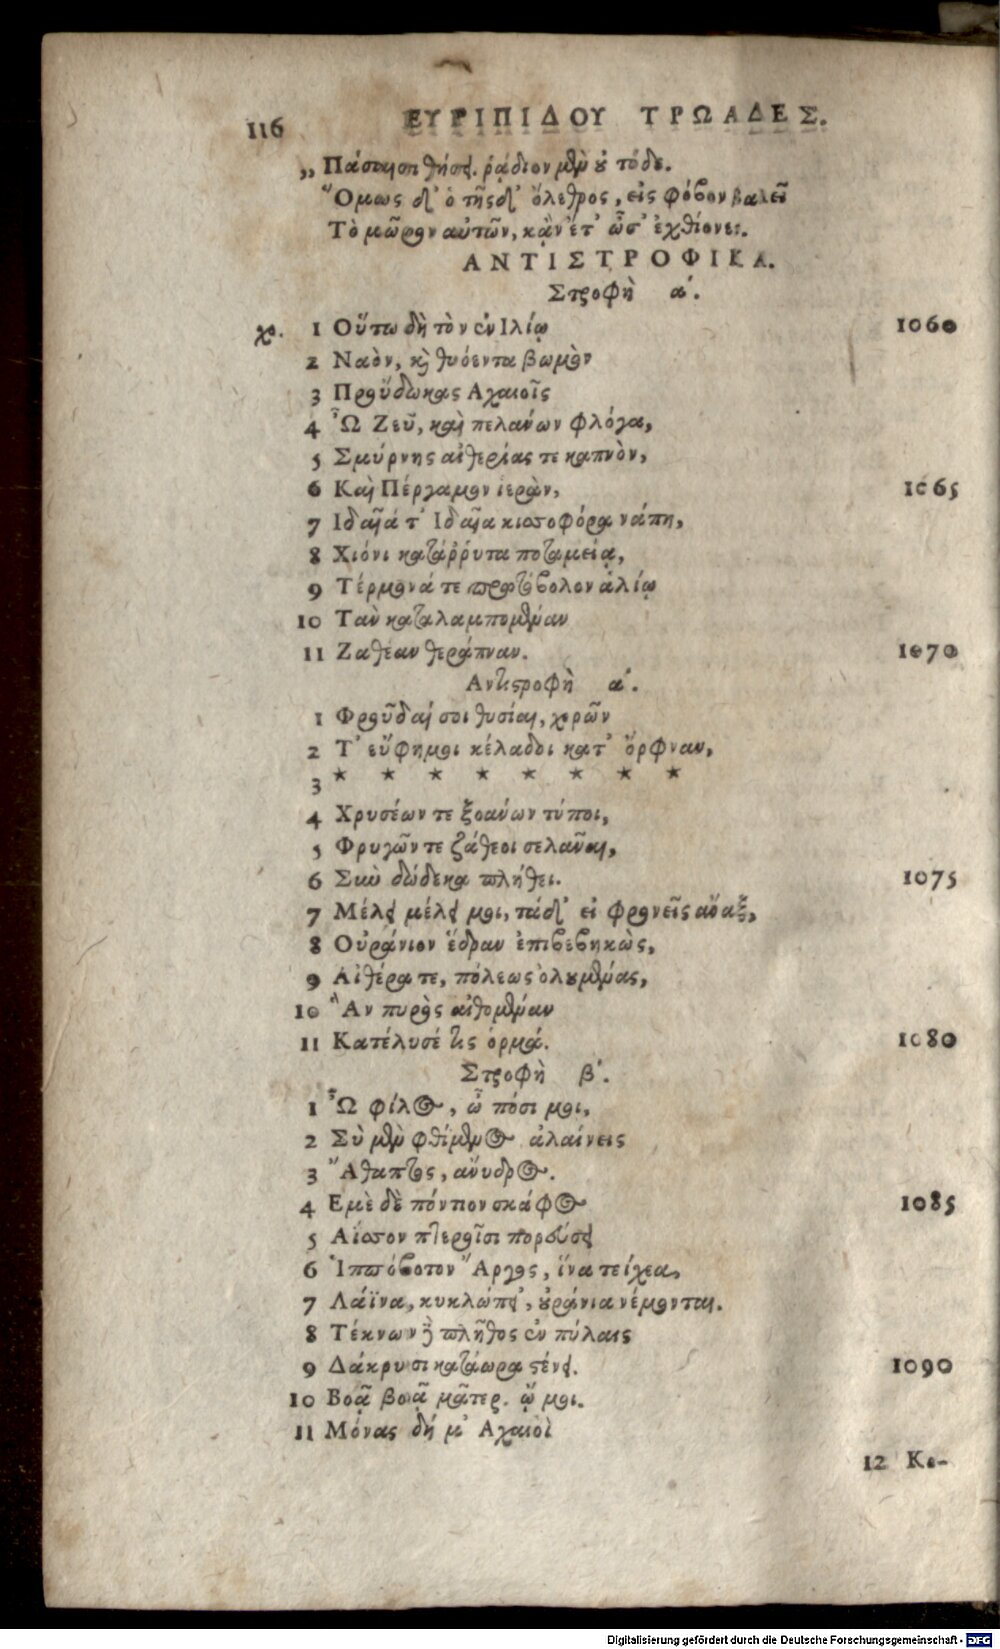 116 ΕΥΡΙΠΙΔΟΥ ΤΡΩΑΔΕΣ.
„ Πάσαισι θήσει. ῥᾴδιον μὲν οὐ τόδε.
Ὅμως δ' ὁ τῆςδ' ὄλεθρος, εἰς φόβον βαλεῖ
Τὸ μῶρον αὐτῶν, κἂν ἔτ' ὦσ' ἐχθίονες.
ΑΝΤΙΣΤΡΟΦΙΚΑ.
Στροφὴ α΄.
χο. 1 Οὕτω δὴ τὸν ἐν Ιλίῳ 1060
2 Ναὸν, καὶ θυόεντα βωμὸν
3 Προὔδωκας Αχαιοῖς
4 Ὦ Ζεῦ, καὶ πελανων φλόγα,
5 Σμύρνης αἰθερίας τε καπνὸν,
6 Καὶ Πέργαμον ἱερὰν, 1065
7 Ιδαῖά τ' Ιδαῖα κισσοφόρα νάπη,
8 Χιόνι κατάῤῥυτα ποταμείᾳ,
9 Τέρμονά τε πρωτόβολον ἁλίῳ
10 Τὰν καταλαμπομέναν
11 Ζαθέαν θεράπναν. 1070
Αντιστροφὴ α΄.
1 Φροῦδαί σοι θυσίαι, χορῶν
2 Τ' εὔφημοι κέλαδοι κατ' ὄρφναν,
3 * * * * * * * *
4 Χρυσέων τε ξοάνων τύποι,
5 Φρυγῶν τε ζάθεοι σελᾶναι,
6 Σὺν δώδεκα πλήθει. 1075
7 Μέλει μέλει μοι, τάδ' εἰ φρονεῖς ἄναξ,
8 Οὐράνιον ἕδραν ἐπιβεβηκὼς,
9 Αἰθέρα τε, πόλεως ὀλουμένας,
10 Ἃν πυρὸς αἰθομέναν
11 Κατέλυσέ τις ὁρμά. 1080
Στροφὴ β΄.
1 Ὦ φίλος, ὦ πόσι μοι,
2 Σὺ μὲν φθίμενος ἀλαίνεις
3 Ἄθαπτος, ἄνυδρος.
4 Εμὲ δὲ πόντιον σκάφος 1085
5 Αίσσον πτεροῖσι πορεύσει
6 Ἱππόβοτον Ἄργος, ἵνα τείχεα,
7 Λάϊνα, κυκλώπει', οὐράνια νέμονται.
8 Τέκνων δὲ πλῆθος ἐν πύλαις
9 Δάκρυσι κατάωρα στένει. 1090
10 Βοᾷ βοᾷ μᾶτερ. ᾤ μοι.
11 Μόνας δή μ' Αχαιοὶ
12 Κο-
Digitalisierung gefördert durch die Deutsche Forschungsgemeinschaft - DFG